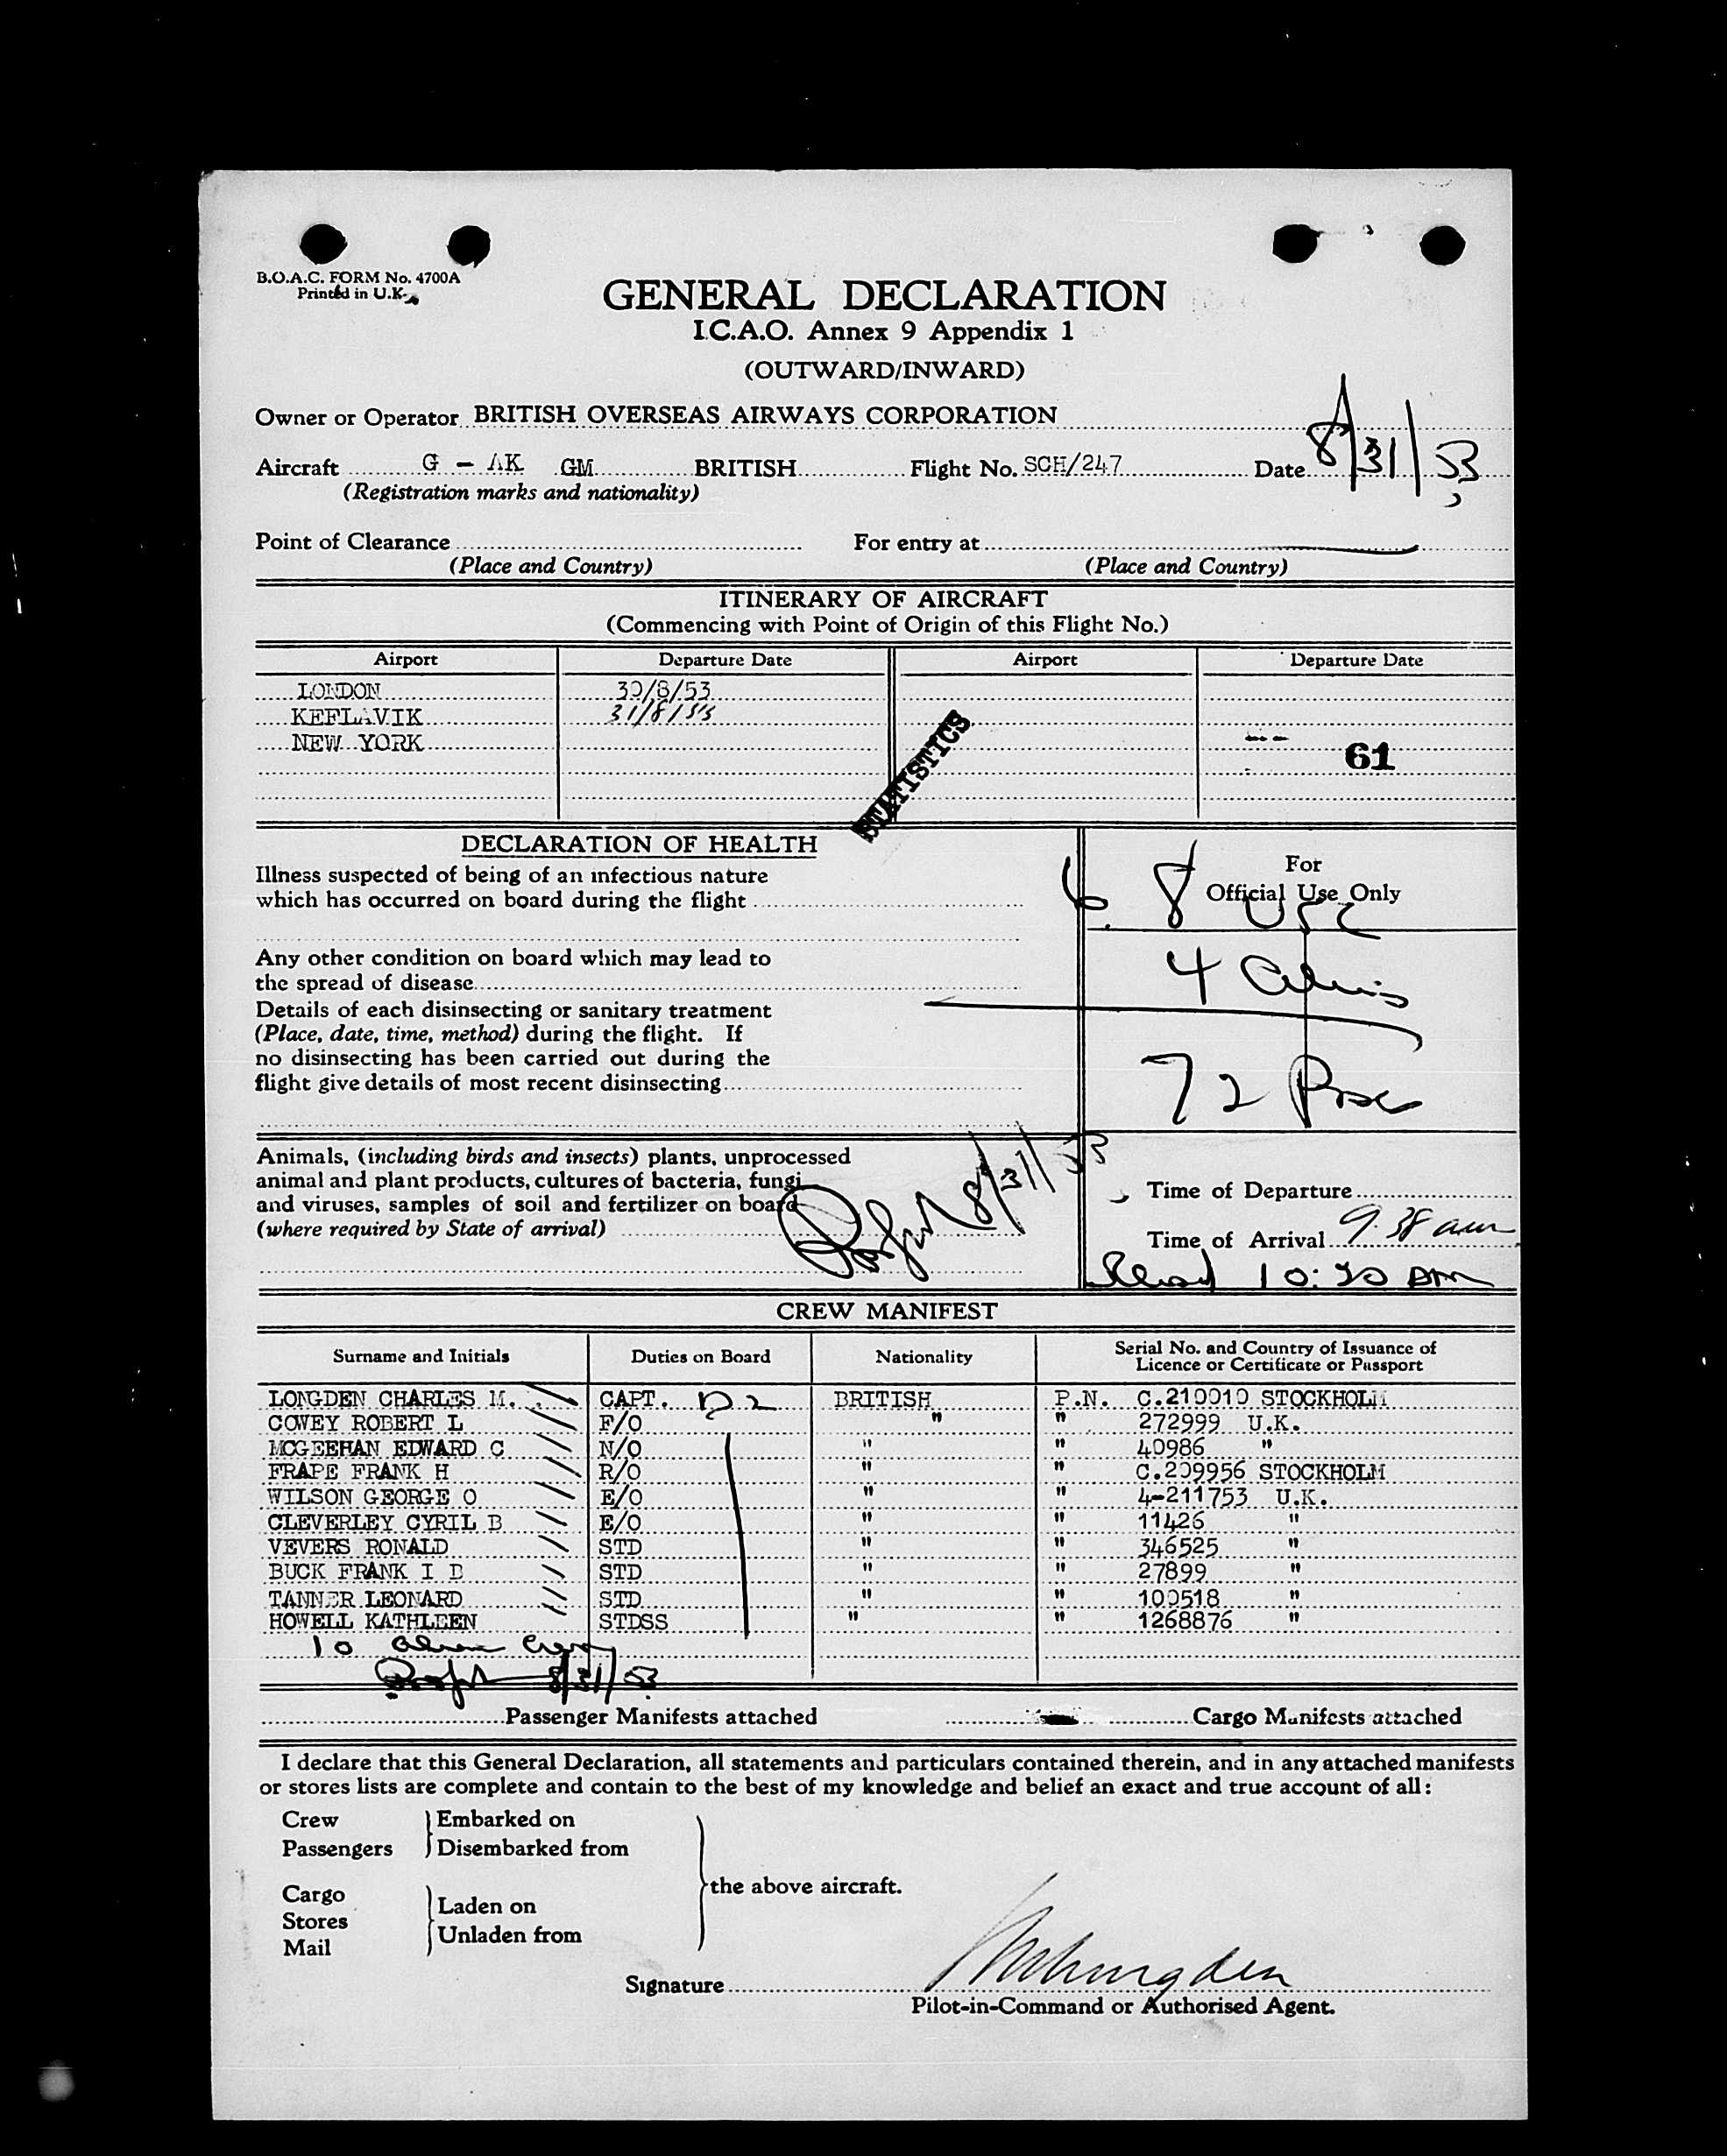 B.O.A.C. FORM No. 4700A
Printed in U.K.
GENERAL DECLARATION
I.C.A.O. Annex 9 Appendix 1
(OUTWARD/INWARD)
Owner or Operator BRITISH OVERSEAS AIRWAYS CORPORATION
Aircraft G - AK GM BRITISH Flight No. SCH/247 Date 8/31/53
(Registration marks and nationality)
Point of Clearance For entry at
(Place and Country) (Place and Country)
ITINERARY OF AIRCRAFT
(Commencing with Point of Origin of this Flight No.)
Airport Departure Date Airport Departure Date
LONDON 30/8/53
KEFLAVIK 31/8/53
NEW YORK
STATISTICS
61
DECLARATION OF HEALTH
Illness suspected of being of an infectious nature
which has occurred on board during the flight
Any other condition on board which may lead to
the spread of disease
Details of each disinsecting or sanitary treatment
(Place, date, time, method) during the flight. If
no disinsecting has been carried out during the
flight give details of most recent disinsecting
For
Official Use Only
6 8 USC
4 Aliens
72 Pax
Animals, (including birds and insects) plants, unprocessed
animal and plant products, cultures of bacteria, fungi
and viruses, samples of soil and fertilizer on board
(where required by State of arrival)
8/31/53
Time of Departure
Time of Arrival 9.38 am
10:20 AM
CREW MANIFEST
Surname and Initials Duties on Board Nationality Serial No. and Country of Issuance of Licence or Certificate or Passport
LONGDEN CHARLES M. CAPT. D2 BRITISH P.N. C.210010 STOCKHOLM
COWEY ROBERT L F/O " " 272999 U.K.
MCGEEHAN EDWARD C N/O " " 40986 "
FRAPE FRANK H R/O " " C.209956 STOCKHOLM
WILSON GEORGE O E/O " " 4-211753 U.K.
CLEVERLEY CYRIL B E/O " " 11426 "
VEVERS RONALD STD " " 346525 "
BUCK FRANK I D STD " " 27899 "
TANNER LEONARD STD " " 100518 "
HOWELL KATHLEEN STDSS " " 1268876 "
10 Alien Crew
8/31/53
Passenger Manifests attached Cargo Manifests attached
I declare that this General Declaration, all statements and particulars contained therein, and in any attached manifests
or stores lists are complete and contain to the best of my knowledge and belief an exact and true account of all:
Crew Embarked on
Passengers Disembarked from
the above aircraft.
Cargo
Stores Laden on
Mail Unladen from
Signature
Pilot-in-Command or Authorised Agent.